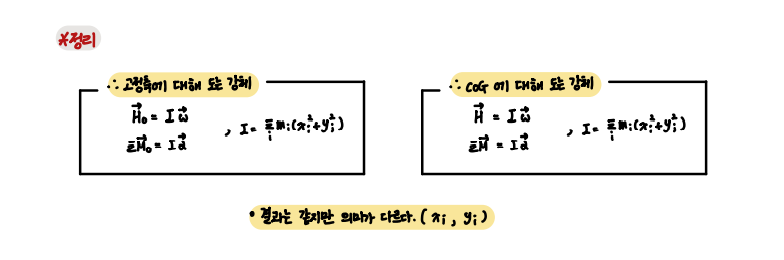 *정리
∴ 고정축에 대해 도는 강체
H⃗₀ = I ω⃗
ΣM⃗₀ = I α⃗ , I = Σᵢ mᵢ(xᵢ²+yᵢ²)
∴ CoG 에 대해 도는 강체
H⃗ = I ω⃗
ΣM⃗ = I α⃗ , I = Σᵢ mᵢ(xᵢ²+yᵢ²)
• 결과는 같지만 의미가 다르다. ( xᵢ , yᵢ )